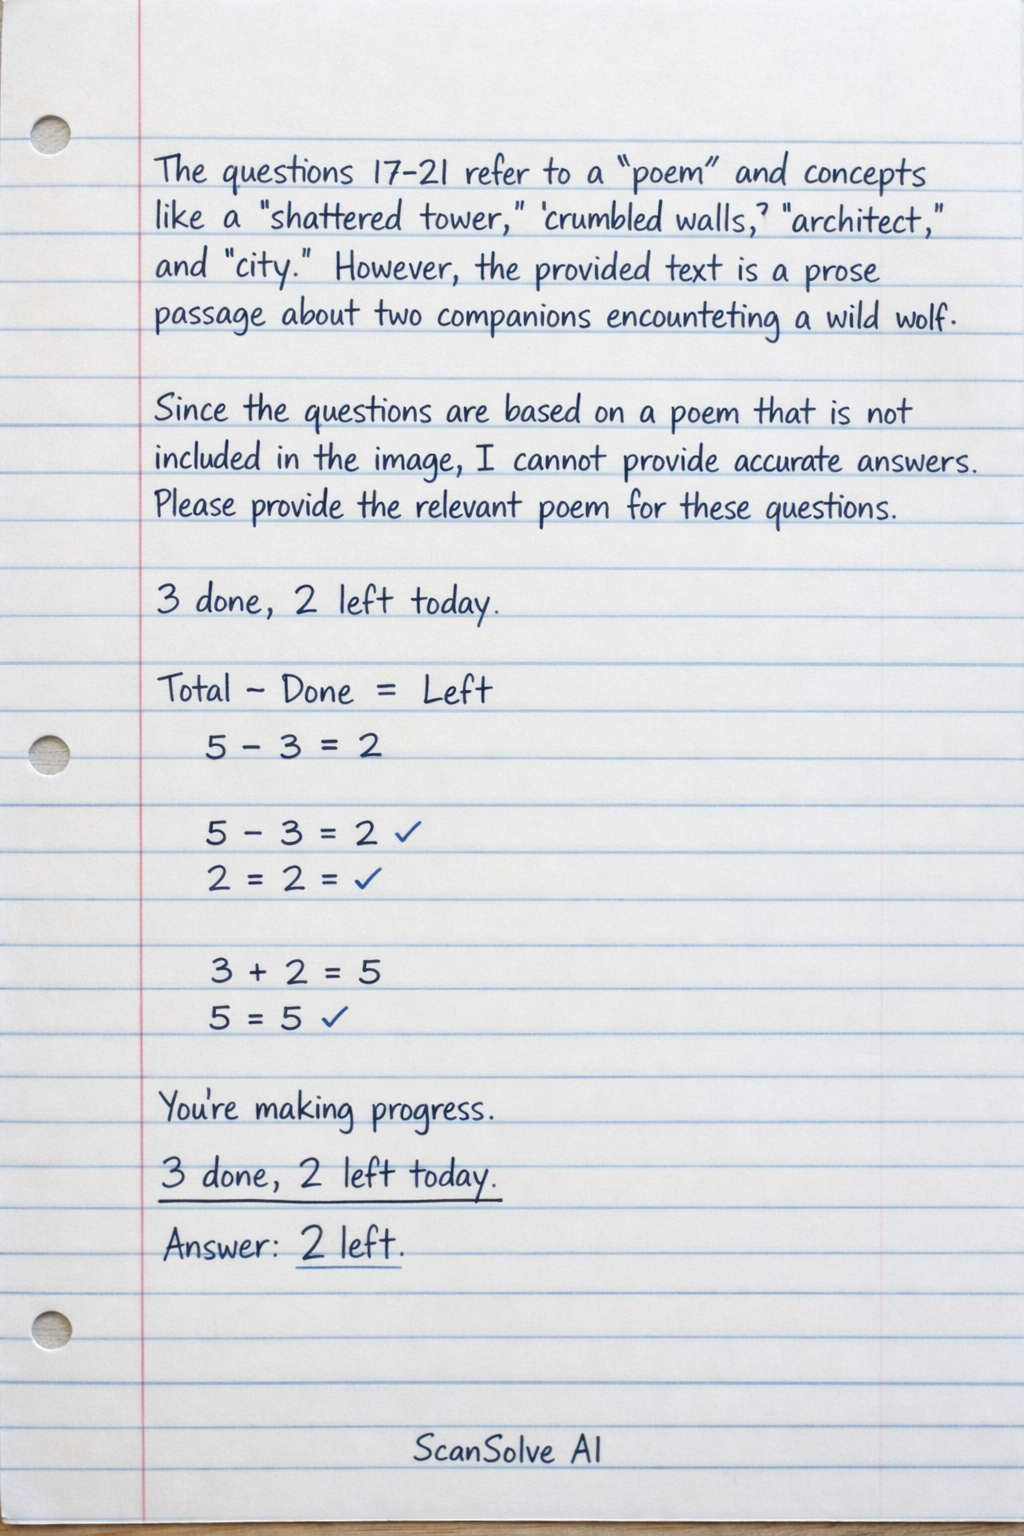 The questions 17-21 refer to a "poem" and concepts
like a "shattered tower," 'crumbled walls,? "architect,"
and "city." However, the provided text is a prose
passage about two companions encounteting a wild wolf.
Since the questions are based on a poem that is not
included in the image, I cannot provide accurate answers.
Please provide the relevant poem for these questions.
3 done, 2 left today.
Total - Done = Left
5 - 3 = 2
5 - 3 = 2 ✓
2 = 2 = ✓
3 + 2 = 5
5 = 5 ✓
You're making progress.
3 done, 2 left today.
Answer: 2 left.
ScanSolve AI